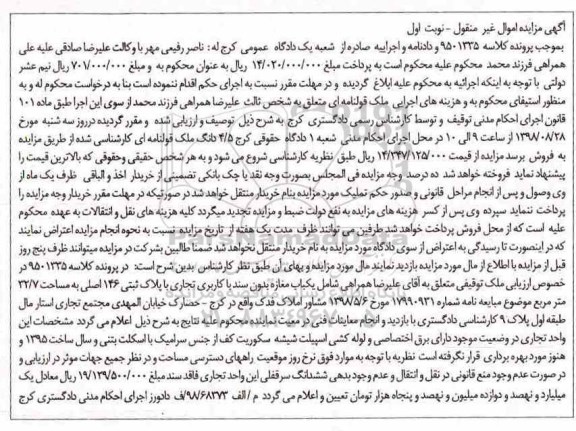 آگهی مزایده اموال غیر منقول - نوبت اول
بموجب پرونده کلاسه ۹۵۰۱۳۳۵ و دادنامه و اجراییه صادره از شعبه یک دادگاه عمومی کرج له : ناصر رفیعی مهر با وکالت علیرضا صادقی علیه علی
همراهی فرزند محمد محکوم علیه محکوم است به پرداخت مبلغ ۱۴/۰۲۰/۰۰۰/۰۰۰ ریال به عنوان محکوم به و مبلغ ۷۰۱/۰۰۰/۰۰۰ ریال نیم عشر
دولتی با توجه به اینکه اجرائیه به محکوم علیه ابلاغ گردیده و در مهلت مقرر نسبت به اجرای حکم اقدام ننموده است بنا به درخواست محکوم له و به
منظور استیفای محکوم به و هزینه های اجرایی ملک قولنامه ای متعلق به شخص ثالث علیرضا همراهی فرزند محمد از سوی این اجرا طبق ماده ۱۰۱
قانون اجرای احکام مدنی توقیف و توسط کارشناس رسمی دادگستری کرج به شرح ذیل توصیف و ارزیابی شده و مقرر گردیده در روز سه شنبه مورخ
۱۳۹۸/۰۸/۲۸ از ساعت ۹ الی ۱۰ در محل اجرای احکام مدنی شعبه ۱ دادگاه حقوقی کرج ۴/۵ دانگ ملک قولنامه ای کارشناسی شده از طریق مزایده
به فروش برسد مزایده از قیمت ۱۴/۳۴۷/۱۲۵/۰۰۰ ریال طبق نظریه کارشناسی شروع می شود و به هر شخص حقیقی وحقوقی که بالاترین قیمت را
پیشنهاد نماید فروخته خواهد شد ده درصد وجه مزایده فی المجلس بصورت وجه نقد یا چک بانکی تضمینی از خریدار اخذ و الباقی ظرف یک ماه از
وی وصول و پس از انجام مراحل قانونی و صدور حکم تملیک مورد مزایده بنام خریدار منتقل خواهد شد در صورتیکه در مهلت مقرر خریدار وجه مزایده را
پرداخت ننماید سپرده وی پس از کسر هزینه های مزایده به نفع دولت ضبط و مزایده تجدید میگردد کلیه هزینه های نقل و انتقالات به عهده محکوم
علیه است که از محل فروش پرداخت خواهد شد طرفین می توانند ظرف مدت یک هفته از تاریخ مزایده نسبت به نحوه انجام مزایده اعتراض نمایند
که در اینصورت تا رسیدگی به اعتراض از سوی دادگاه مورد مزایده به نام خریدار منتقل نخواهد شد ضمنا طالبین بشرکت در مزایده میتوانند ظرف پنج روز
قبل از مزایده با اطلاع از مال مورد مزایده بازدید نمایند مال مورد مزایده و بهای آن طبق نظر کارشناس بدین شرح است: در پرونده کلاسه ۹۵۰۱۳۳۵ در
خصوص ارزیابی ملک توقیفی متعلق به آقای علیرضا همراهی شامل یکباب مغازه بدون سند با کاربری تجاری با پلاک ثبتی ۱۴۶ اصلی به مساحت ۳۲/۷
متر مربع موضوع مبایعه نامه شماره ۱۷۹۹۰۹۳۱ مورخ ۱۳۹۸/۵/۶ مشاور املاک فدک واقع در کرج - حصارک خیابان المهدی مجتمع تجاری استار مال
طبقه اول پلاک ۹ کارشناسی دادگستری با بازدید و انجام معاینات فنی در معیت نماینده محکوم علیه نتایج به شرح ذیل اعلام می گردد مشخصات این
واحد تجاری در وضعیت موجود دارای برق اختصاصی و لوله کشی اسپیلت شیشه سکوریت کف از جنس سرامیک با اسکلت بتنی و سال ساخت ۱۳۹۵ و
هنوز مورد بهره برداری قرار نگرفته است نظریه با توجه به موارد فوق نرخ روز موقعیت راههای دسترسی مساحت و در نظر جمیع جهات موثر در ارزیابی و
در صورت عدم وجود منع قانونی در نقل و انتقال و عدم وجود بدهی ششدانگ سرقفلی این واحد تجاری فاقد سند مبلغ ۱۹/۱۲۹/۵۰۰/۰۰۰ ریال معادل یک
میلیارد و نهصد و دوازده میلیون و نهصد و پنجاه هزار تومان تعیین و اعلام می گردد م / الف ۹۸/۶۸۳۷۳/ف دادورز اجرای احکام مدنی دادگستری کرج